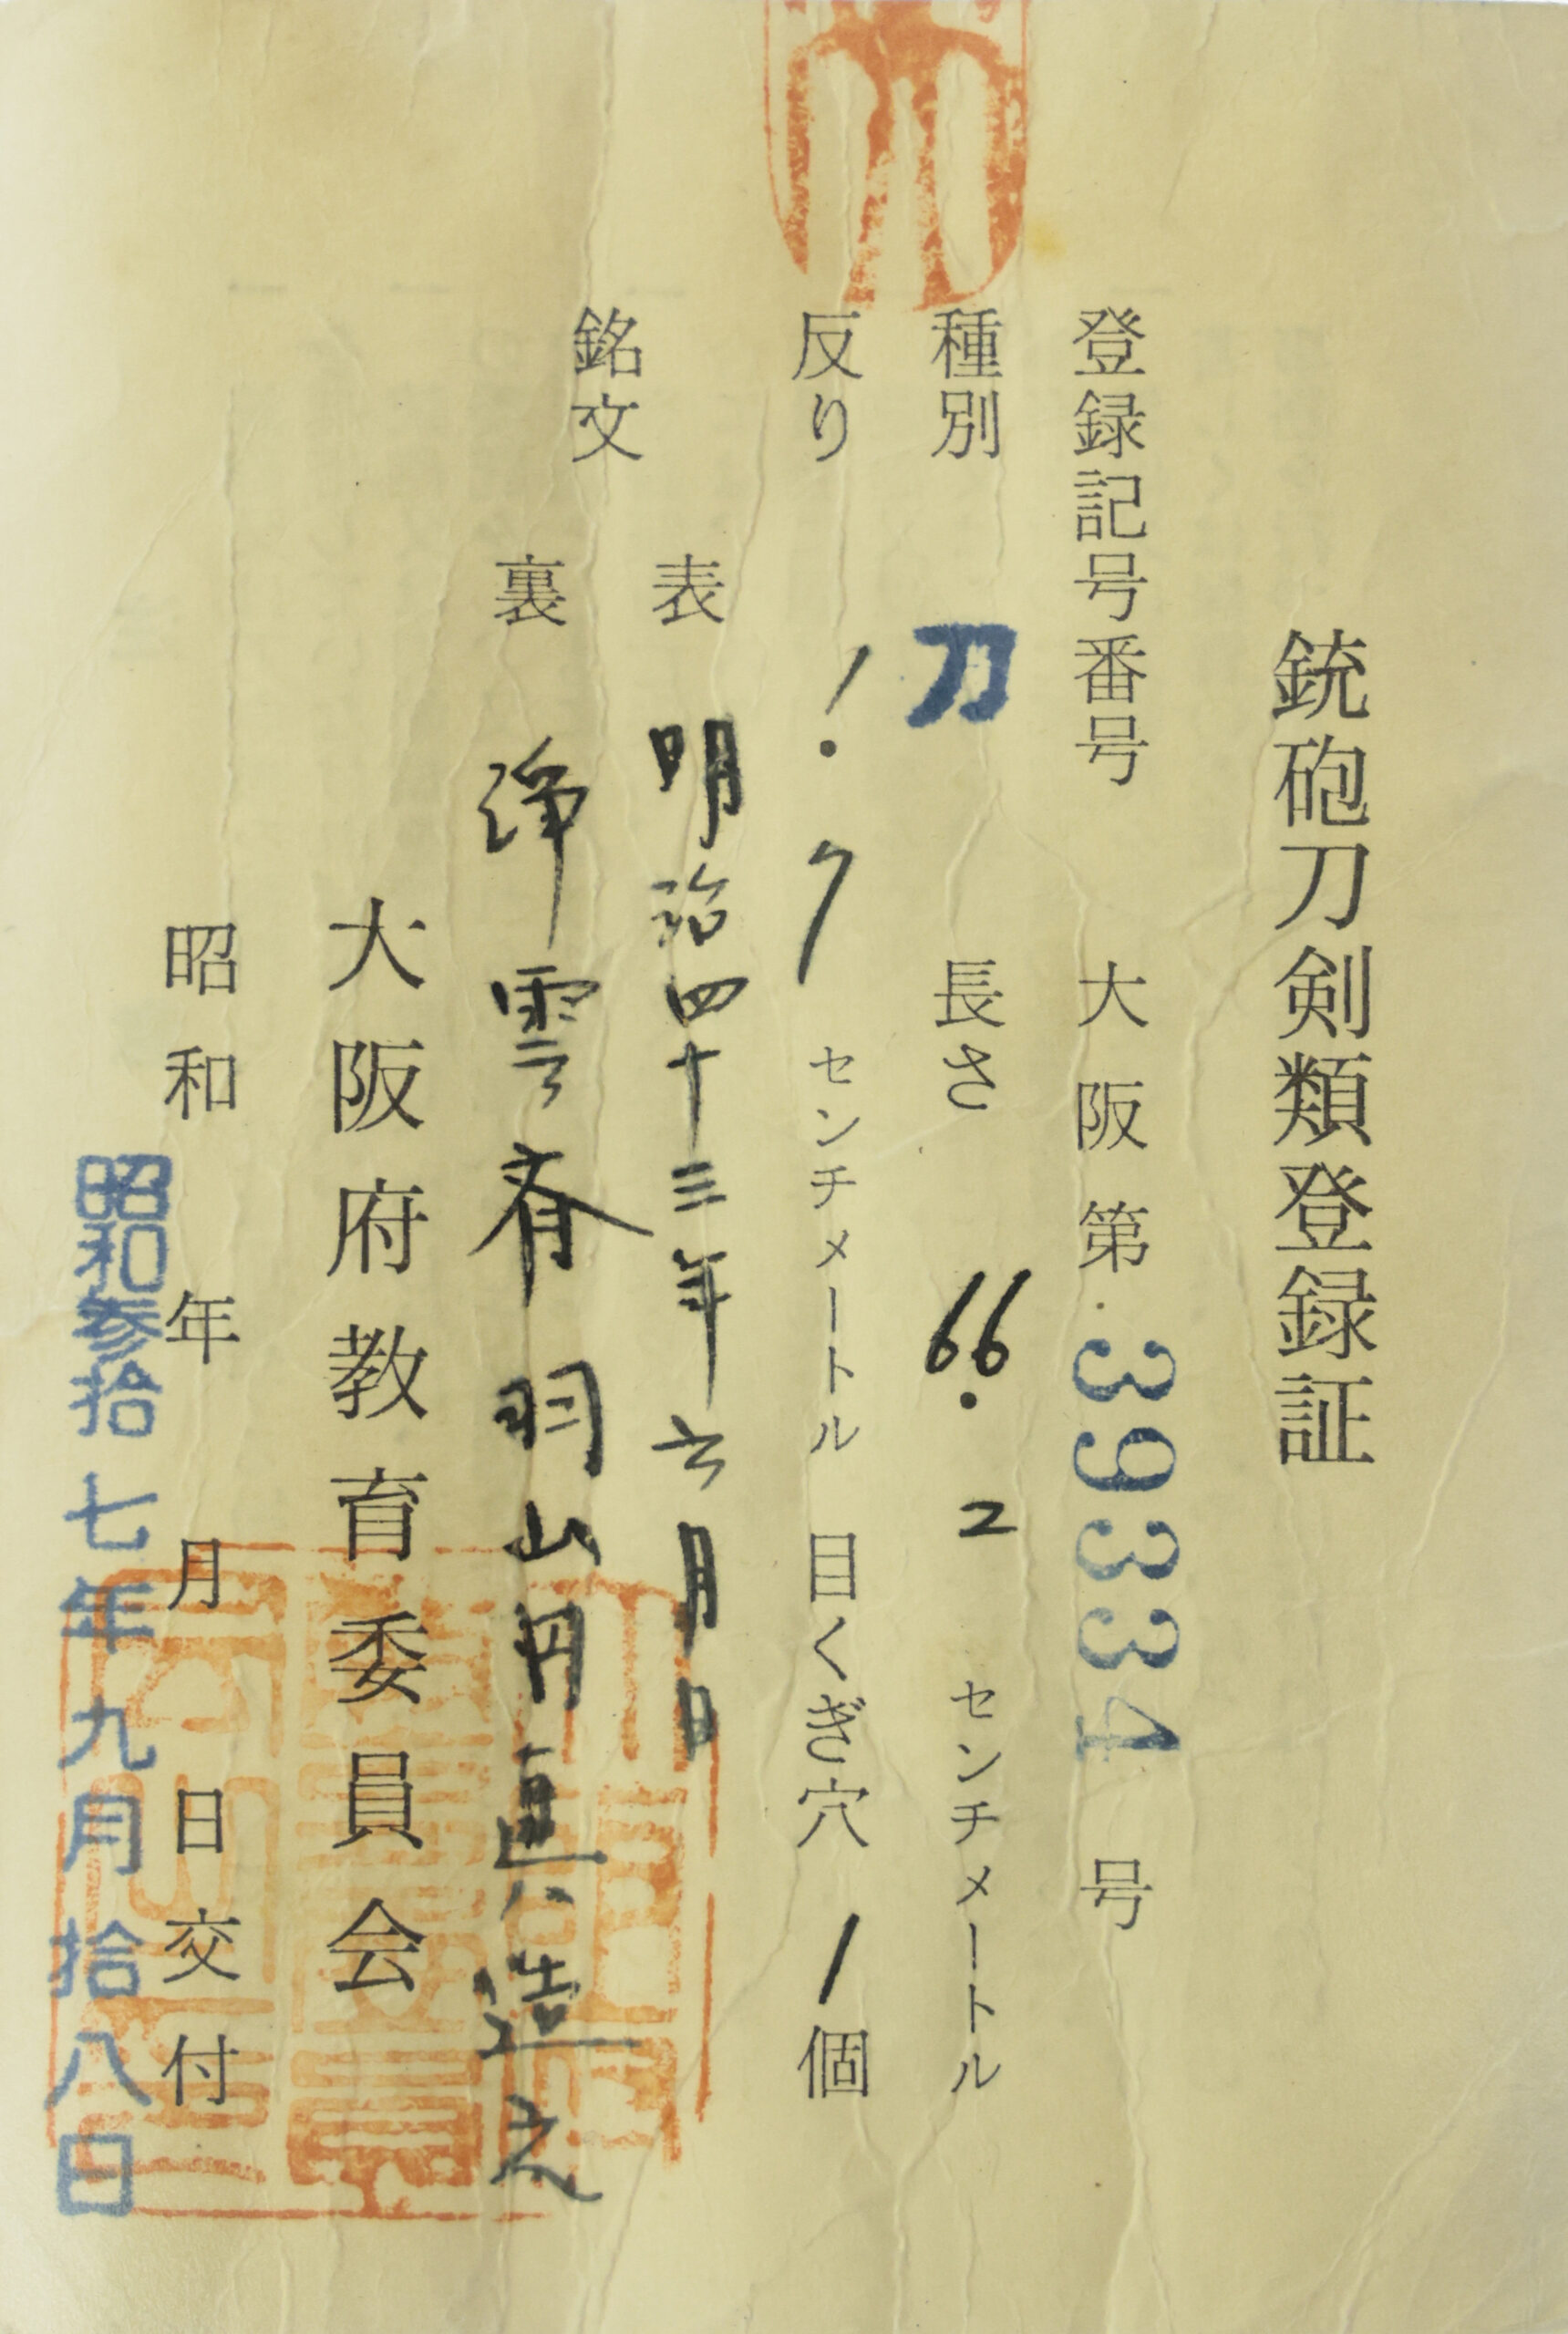 銃砲刀剣類登録証
登録記号番号 大阪第39334号
種別 刀 長さ 66.2 センチメートル
反り 1.7 センチメートル 目くぎ穴 1 個
銘文
表 明治四十三年六月日
裏 浄雲斉羽山円真造之
大阪府教育委員会
昭和 年 月 日交付
昭和参拾七年九月拾八日